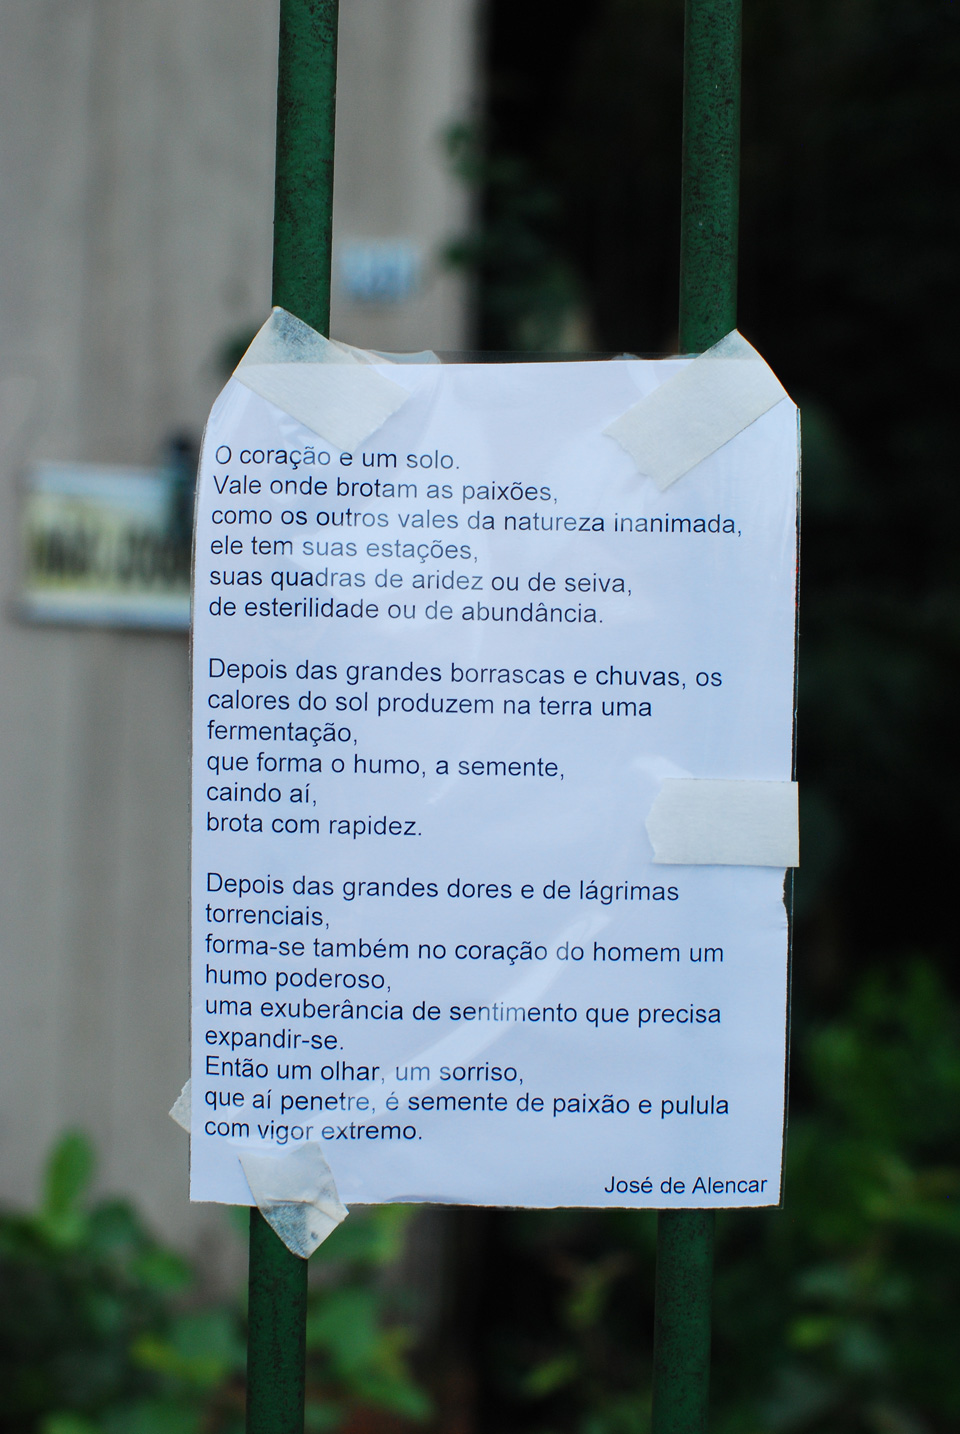 O coração e um solo.
Vale onde brotam as paixões,
como os outros vales da natureza inanimada,
ele tem suas estações,
suas quadras de aridez ou de seiva,
de esterilidade ou de abundância.
Depois das grandes borrascas e chuvas, os
calores do sol produzem na terra uma
fermentação,
que forma o humo, a semente,
caindo aí,
brota com rapidez.
Depois das grandes dores e de lágrimas
torrenciais,
forma-se também no coração do homem um
humo poderoso,
uma exuberância de sentimento que precisa
expandir-se.
Então um olhar, um sorriso,
que aí penetre, é semente de paixão e pulula
com vigor extremo.
José de Alencar